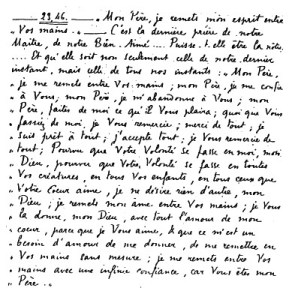 23,46. _ „ Mon Père, je remets mon esprit entre
Vos mains „. _ C'est la dernière prière de notre
Maître, de notre Bien Aimé.... Puisse-t-elle être la nôtre,
.... Et qu'elle soit non seulement celle de notre dernier
instant, mais celle de tous nos instants : „ Mon Père,
je me remets entre Vos mains ; mon Père, je me confie
à Vous, mon Père, je m'abandonne à Vous ; mon
Père, faites de moi ce qu'il Vous plaira ; quoi que Vous
fassiez de moi, je Vous remercie ; merci de tout ; je
suis prêt à tout ; j'accepte tout ; je Vous remercie de
tout ; Pourvu que Votre Volonté se fasse en moi, mon
Dieu, pourvu que Votre Volonté se fasse en toutes
Vos créatures, en tous Vos enfants, en tous ceux que
Votre Coeur aime, je ne désire rien d'autre, mon
Dieu ; je remets mon âme entre Vos mains ; je Vous
la donne, mon Dieu, avec tout l'amour de mon
coeur, parce que je Vous aime, & que ce m'est un
besoin d'amour de me donner, de me remettre en
Vos mains sans mesure ; je me remets entre Vos
mains avec une infinie confiance, car Vous êtes mon
Père „.